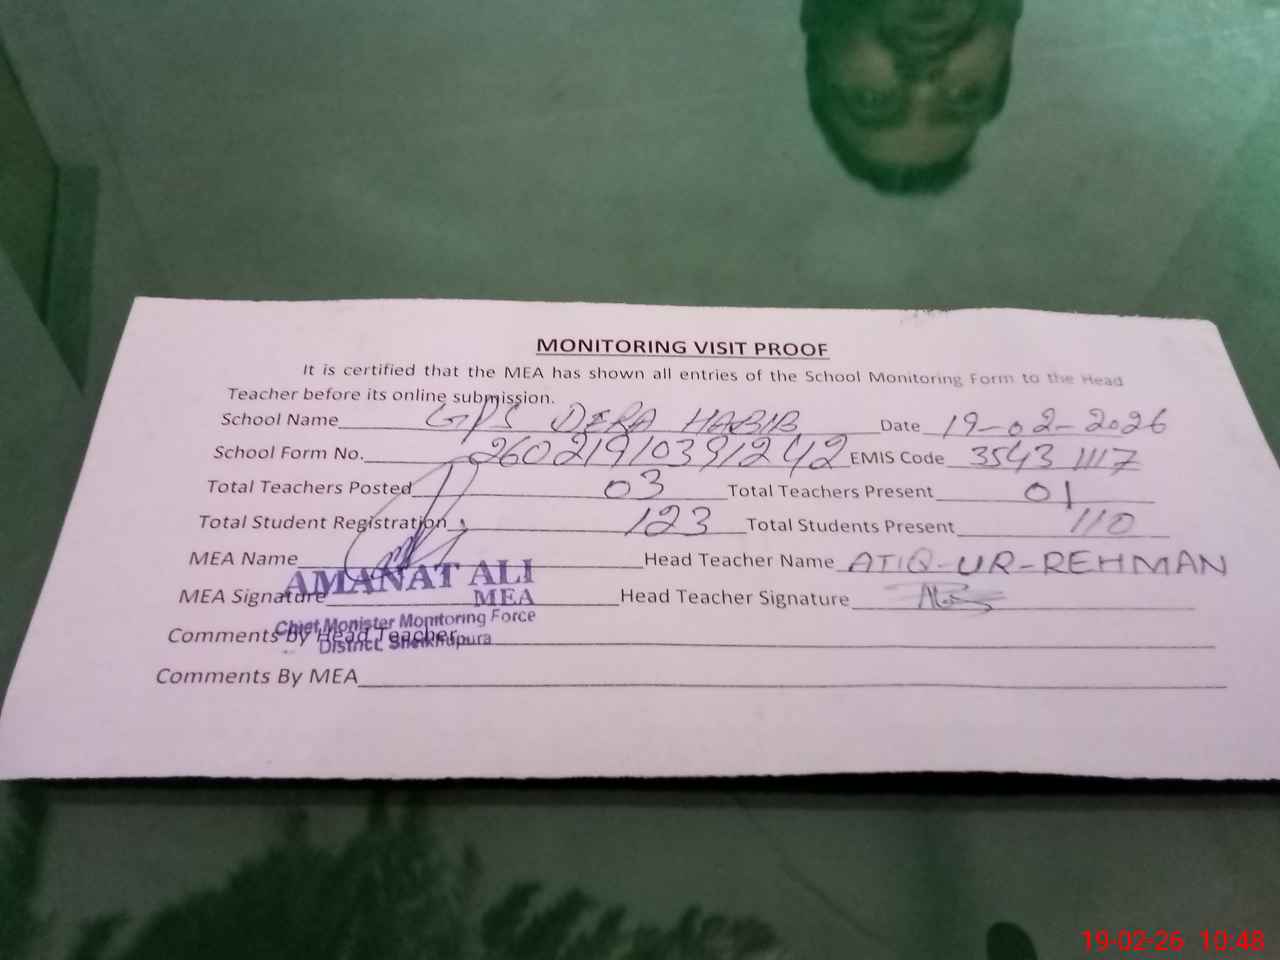 MONITORING VISIT PROOF
It is certified that the MEA has shown all entries of the School Monitoring Form to the Head
Teacher before its online submission.
School Name GPS DERA HABIB Date 19-02-2026
School Form No. 26021910391242 EMIS Code 35431117
Total Teachers Posted 03 Total Teachers Present 01
Total Student Registration 123 Total Students Present 110
MEA Name Head Teacher Name ATIQ-UR-REHMAN
AMANAT ALI
MEA Signature MEA Head Teacher Signature
Chief Monister Monitoring Force
Comments by Head Teacher
District Sheikhupura
Comments By MEA
19-02-26 10:48